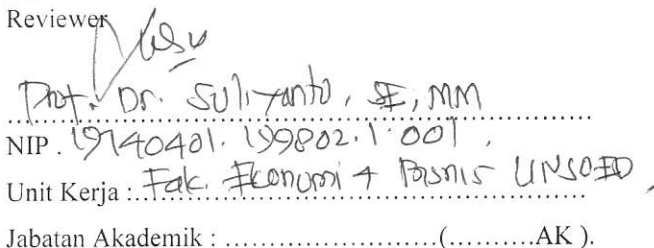 Reviewer
Prof. Dr. Suliyanto, SE, MM
NIP . 19740401. 199802.1.001.
Unit Kerja : Fak. Ekonomi & Bisnis UNSOED,
Jabatan Akademik : .......................(..........AK ).